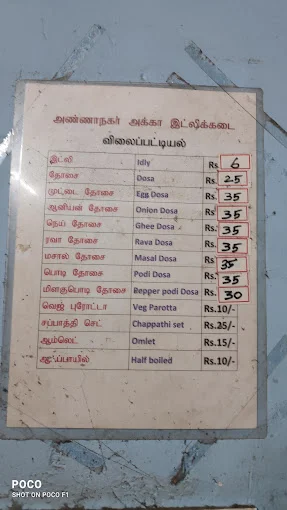 அண்ணாநகர் அக்கா இட்லிக்கடை
விலைப்பட்டியல்
இட்லி Idly Rs. 6
தோசை Dosa Rs. 25
முட்டை தோசை Egg Dosa Rs. 35
ஆனியன் தோசை Onion Dosa Rs. 35
நெய் தோசை Ghee Dosa Rs. 35
ரவா தோசை Rava Dosa Rs. 35
மசால் தோசை Masal Dosa Rs. 35
பொடி தோசை Podi Dosa Rs. 35
மிளகுபொடி தோசை Pepper podi Dosa Rs. 30
வெஜ் புரோட்டா Veg Parotta Rs.10/-
சப்பாத்தி செட் Chappathi set Rs.25/-
ஆம்லெட் Omlet Rs.15/-
Half boiled Rs.10/-
POCO
SHOT ON POCO F1